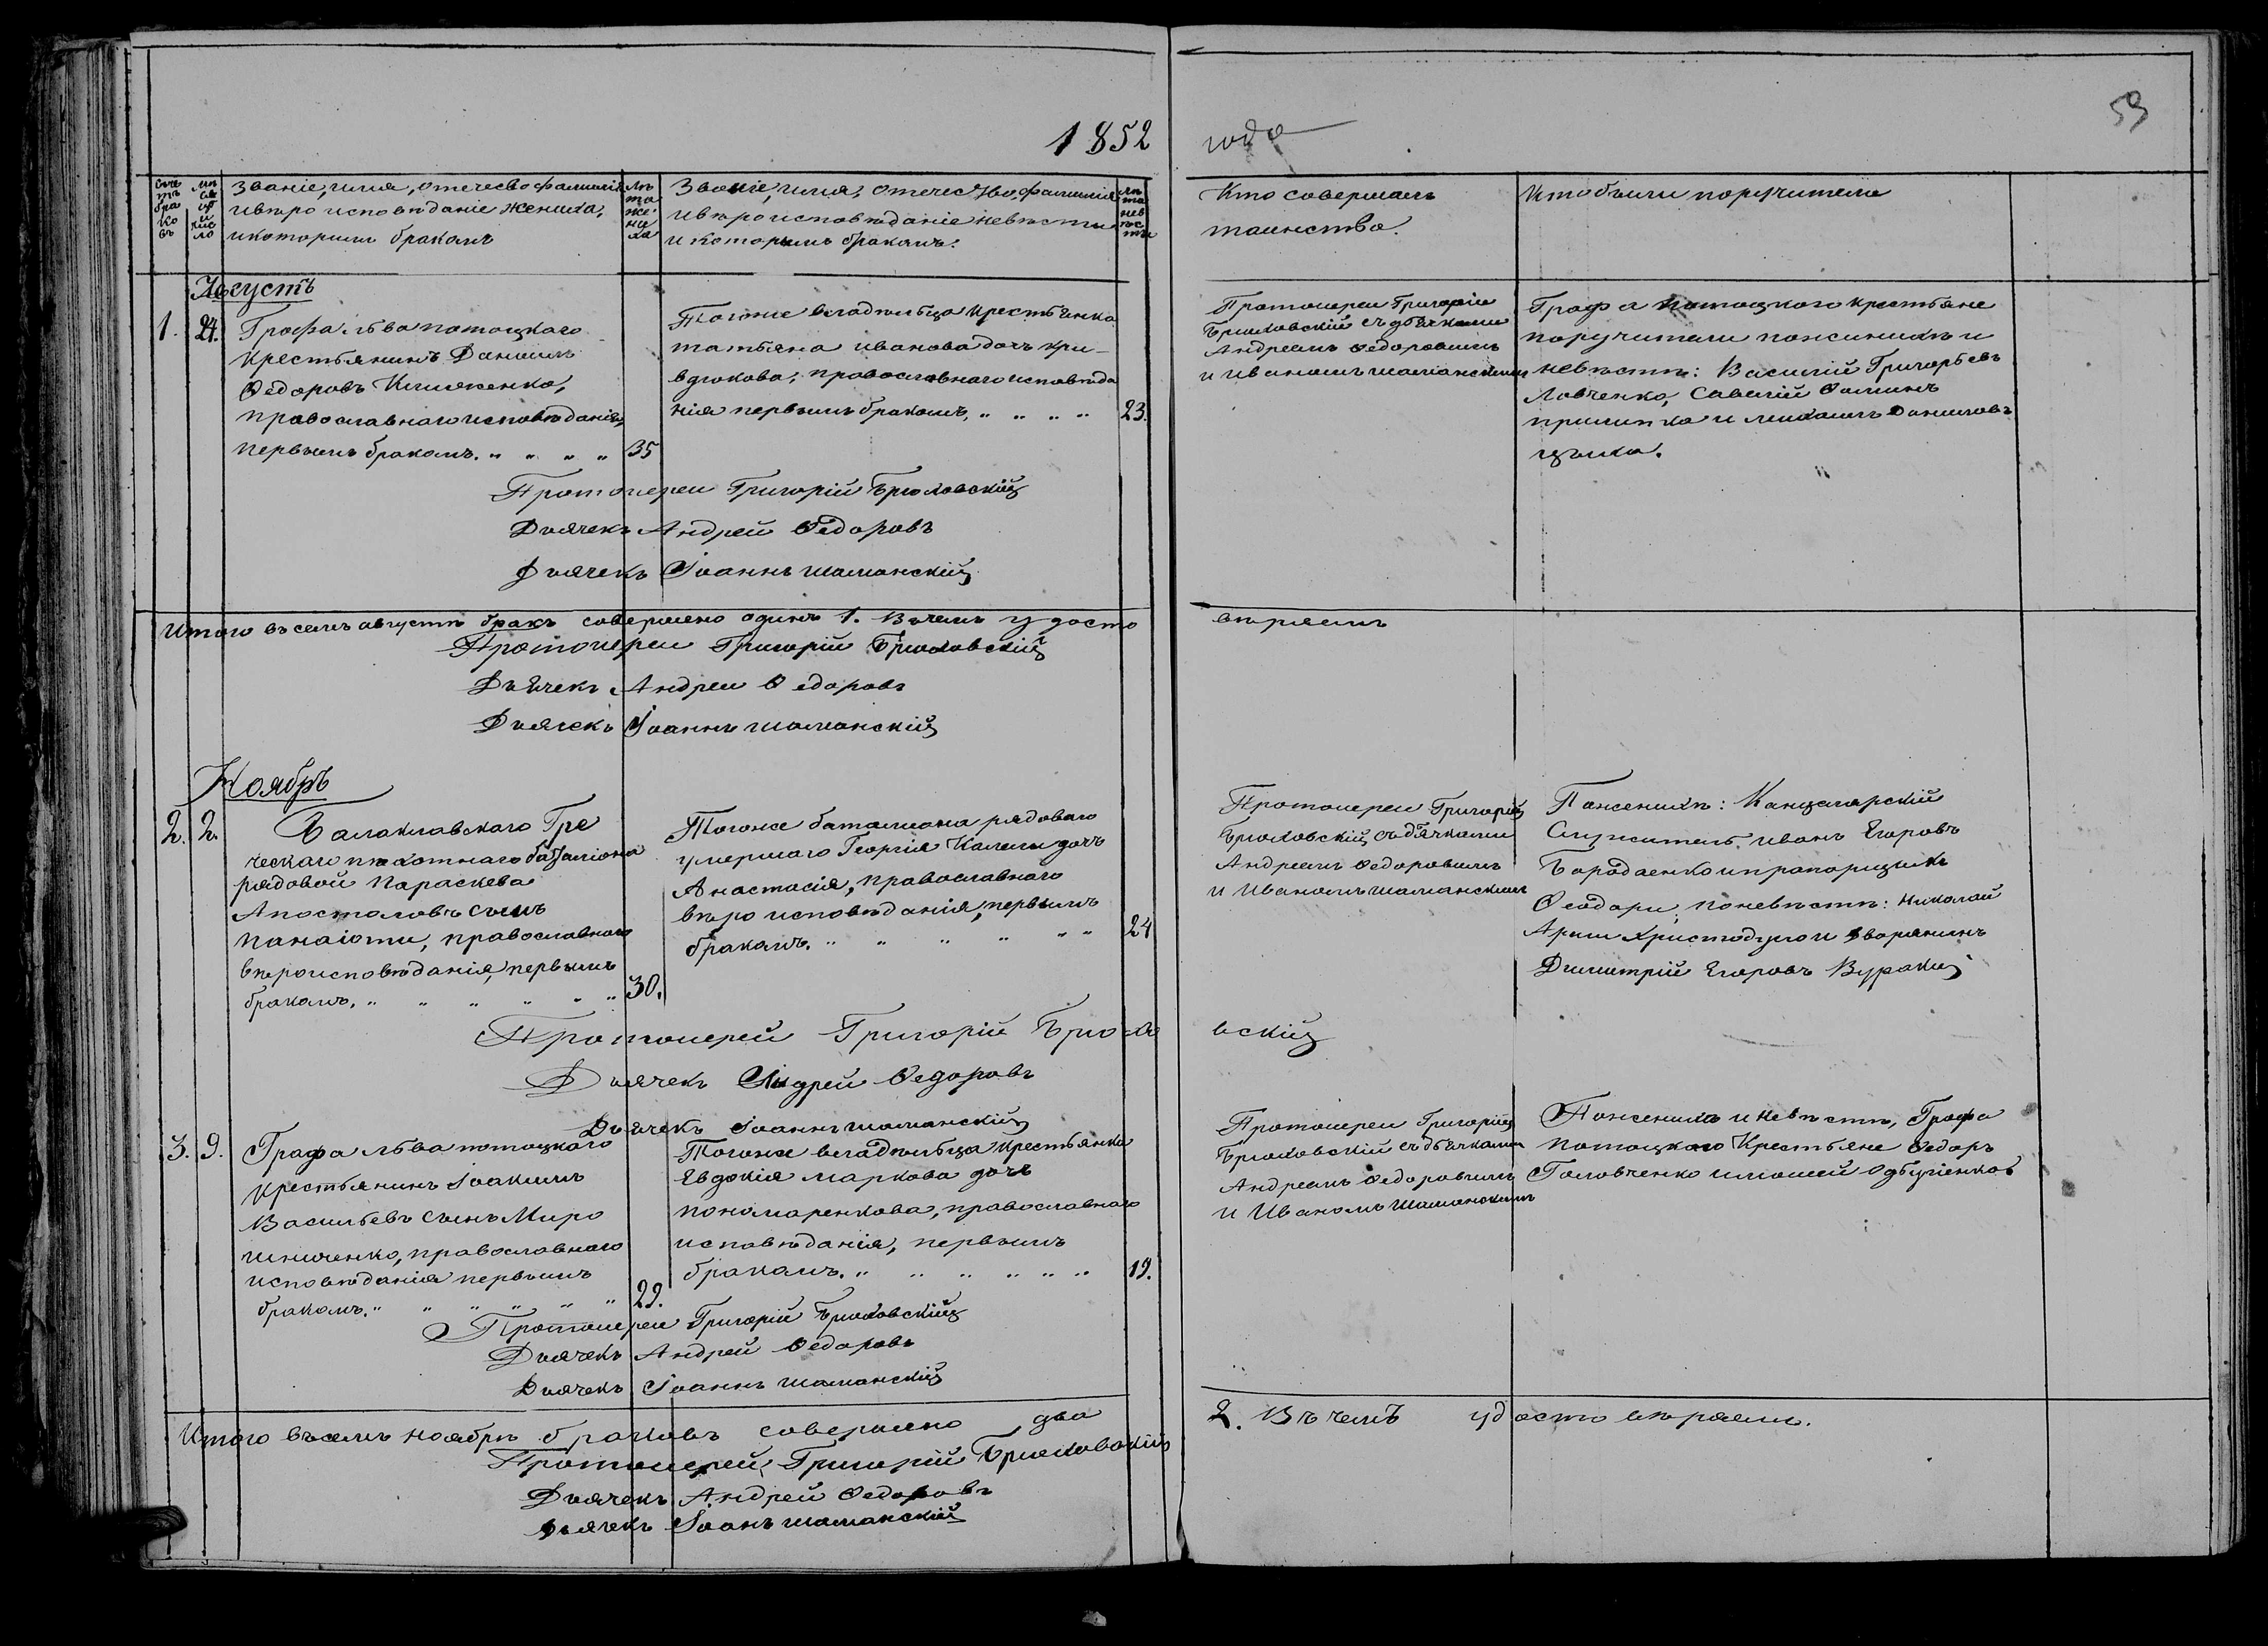 1852 года
59
Счетъ браковъ
Мѣсяцъ и число
Званіе, имя, отечество, фамилія
и вѣроисповѣданіе жениха,
и которымъ бракомъ
Лѣта жениха
Званіе, имя, отечество, фамилія
и вѣроисповѣданіе невѣсты
и которымъ бракомъ.
Лѣта невѣсты
Кто совершалъ
таинство.
Кто были поручители
Августъ
1. 24.
Графа Льва потоцкаго
крестьянинъ Даніилъ
Ѳедоровъ
православнаго исповѣданія,
первымъ бракомъ. " " " " 35
Тогоже владѣльца крестьянка
татьяна иванова дочь кри-
вдюкова, православнаго исповѣда
нія первымъ бракомъ, " " " " 23.
Протоіереи Григоріи
Брюховскій съ дьячками
Андреемъ Ѳедоровымъ
и Иваномъ шаманскимъ
Графа потоцкого крестьяне
поручители по женихѣ и
невѣстѣ: Василій Григорьевъ
Ловченко, Савелій Ѳоминъ
и михаилъ Даниловъ
Протоіереи Григорій Брюховскій
Дьячекъ Андрей Ѳедоровъ
Дьячекъ Іоаннъ шаманскій
Итого въ семъ августѣ бракъ совершено одинъ 1. Въ чемъ удосто
вѣряемъ
Протоіереи Григорій Брюховскій
Дьячекъ Андреи Ѳедоровъ
Дьячекъ Іоаннъ шаманскій
Ноябрь
2. 2.
Балаклавскаго Гре
ческаго пѣхотнаго баталіона
рядовой Параскева
Апостоловъ сынъ
панаіоти, православнаго
вѣроисповѣданія, первымъ
бракомъ, " " " " " " 30.
Тогоже баталиона рядоваго
умершаго Георгія дочь
Анастасія, православнаго
вѣроисповѣданія, первымъ
бракомъ. " " " " " " 24
Протоіереи Григорій
Брюховскій съ дьячками
Андреемъ Ѳедоровымъ
и Иваномъ шаманскимъ
По женихѣ: Канцелярскій
Служитель иванъ Егоровъ
Бородаенко и прапорщикъ
Ѳеодори, по невѣстѣ: Николай
Христодуло и дворянинъ
Димитрій Егоровъ Вураки
Протоіерей Григорій Брюхо
вскій
Дьячекъ Андрей Ѳедоровъ
Дьячекъ Іоаннъ шаманскій
3. 9.
Графа Льва потоцкаго
крестьянинъ Іоакимъ
Васильевъ сынъ Миро
шниченко, православнаго
исповѣданія первымъ
бракомъ. " " " " " " 29.
Тогоже владѣльца крестьянка
Евдокія маркова дочь
пономаренкова, православнаго
исповѣданія, первымъ
бракомъ. " " " " " " 19.
Протоіереи Григорій
Брюховскій съ дьячками
Андреемъ Ѳедоровымъ
и Иваномъ шаманскимъ
По женихѣ и невѣстѣ, Графа
потоцкаго Крестьяне Ѳедоръ
Головченко и моисей
Протоіереи Григорій Брюховскій
Дьячекъ Андрей Ѳедоровъ
Дьячекъ Іоаннъ шаманскій
Итого въ семъ ноябрѣ браковъ совершено два
2. Въ чемъ удостовѣряемъ.
Протоіерей Григорій Брюховскій
Дьячекъ Андрей Ѳедоровъ
Дьячекъ Іоанъ шаманскій